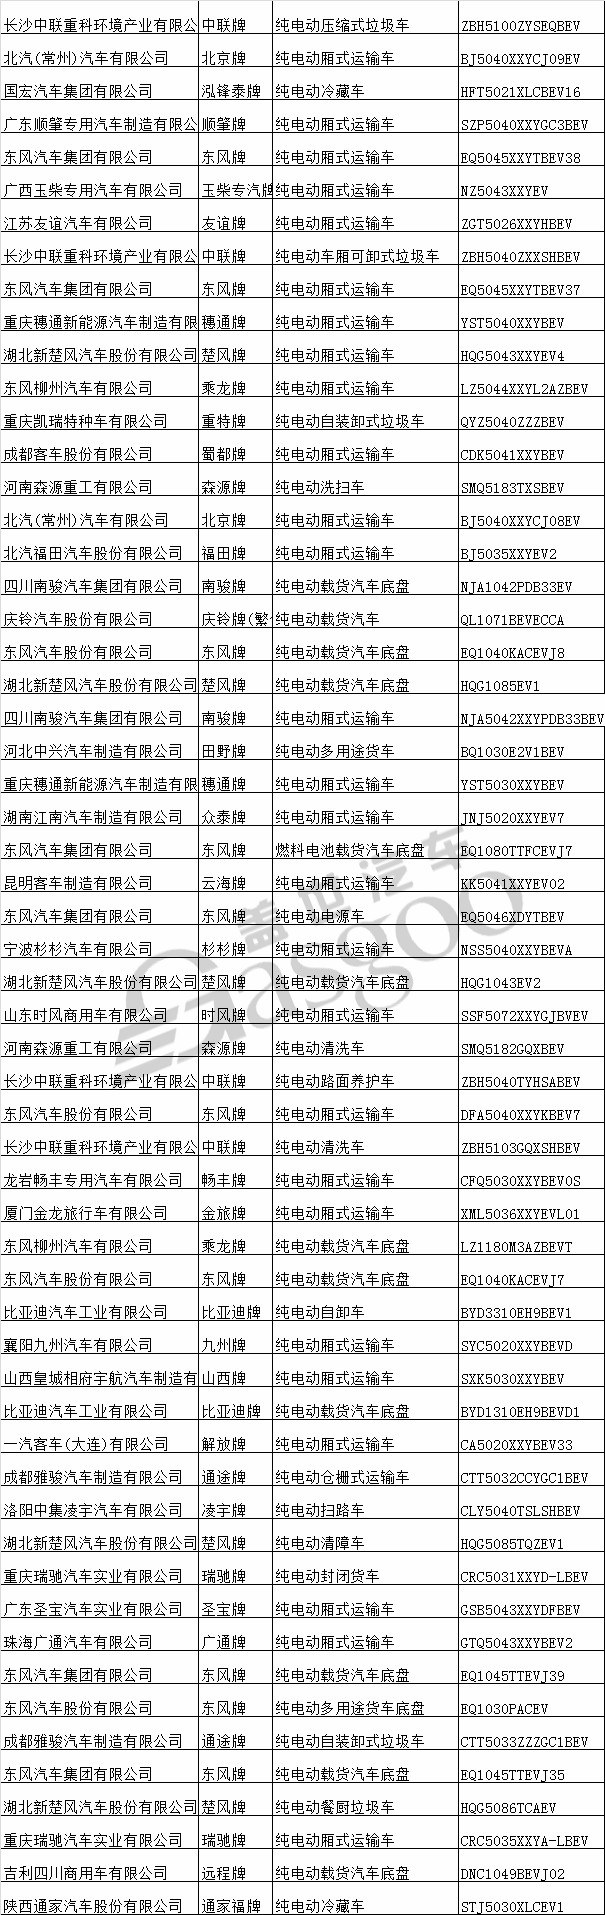 长沙中联重科环境产业有限公 中联牌 纯电动压缩式垃圾车 ZBH5100ZYSEQBEV
北汽(常州)汽车有限公司 北京牌 纯电动厢式运输车 BJ5040XXYCJ09EV
国宏汽车集团有限公司 泓锋泰牌 纯电动冷藏车 HFT5021XLCBEV16
广东顺肇专用汽车制造有限公 顺肇牌 纯电动厢式运输车 SZP5040XXYGC3BEV
东风汽车集团有限公司 东风牌 纯电动厢式运输车 EQ5045XXYTBEV38
广西玉柴专用汽车有限公司 玉柴专汽牌 纯电动厢式运输车 NZ5043XXYEV
江苏友谊汽车有限公司 友谊牌 纯电动厢式运输车 ZGT5026XXYHBEV
长沙中联重科环境产业有限公 中联牌 纯电动车厢可卸式垃圾车 ZBH5040ZXXSHBEV
东风汽车集团有限公司 东风牌 纯电动厢式运输车 EQ5045XXYTBEV37
重庆穗通新能源汽车制造有限 穗通牌 纯电动厢式运输车 YST5040XXYBEV
湖北新楚风汽车股份有限公司 楚风牌 纯电动厢式运输车 HQG5043XXYEV4
东风柳州汽车有限公司 乘龙牌 纯电动厢式运输车 LZ5044XXYL2AZBEV
重庆凯瑞特种车有限公司 重特牌 纯电动自装卸式垃圾车 QYZ5040ZZZBEV
成都客车股份有限公司 蜀都牌 纯电动厢式运输车 CDK5041XXYBEV
河南森源重工有限公司 森源牌 纯电动洗扫车 SMQ5183TXSBEV
北汽(常州)汽车有限公司 北京牌 纯电动厢式运输车 BJ5040XXYCJ08EV
北汽福田汽车股份有限公司 福田牌 纯电动厢式运输车 BJ5035XXYEV2
四川南骏汽车集团有限公司 南骏牌 纯电动载货汽车底盘 NJA1042PDB33EV
庆铃汽车股份有限公司 庆铃牌(繁 纯电动载货汽车 QL1071BEVECCA
东风汽车股份有限公司 东风牌 纯电动载货汽车底盘 EQ1040KACEVJ8
湖北新楚风汽车股份有限公司 楚风牌 纯电动载货汽车底盘 HQG1085EV1
四川南骏汽车集团有限公司 南骏牌 纯电动厢式运输车 NJA5042XXYPDB33BEV
河北中兴汽车制造有限公司 田野牌 纯电动多用途货车 BQ1030E2V1BEV
重庆穗通新能源汽车制造有限 穗通牌 纯电动厢式运输车 YST5030XXYBEV
湖南江南汽车制造有限公司 众泰牌 纯电动厢式运输车 JNJ5020XXYEV7
东风汽车集团有限公司 东风牌 燃料电池载货汽车底盘 EQ1080TTFCEVJ7
昆明客车制造有限公司 云海牌 纯电动厢式运输车 KK5041XXYEV02
东风汽车集团有限公司 东风牌 纯电动电源车 EQ5046XDYTBEV
宁波杉杉汽车有限公司 杉杉牌 纯电动厢式运输车 NSS5040XXYBEVA
湖北新楚风汽车股份有限公司 楚风牌 纯电动载货汽车底盘 HQG1043EV2
山东时风商用车有限公司 时风牌 纯电动厢式运输车 SSF5072XXYGJBVEV
河南森源重工有限公司 森源牌 纯电动清洗车 SMQ5182GQXBEV
长沙中联重科环境产业有限公 中联牌 纯电动路面养护车 ZBH5040TYHSABEV
东风汽车股份有限公司 东风牌 纯电动厢式运输车 DFA5040XXYKBEV7
长沙中联重科环境产业有限公 中联牌 纯电动清洗车 ZBH5103GQXSHBEV
龙岩畅丰专用汽车有限公司 畅丰牌 纯电动厢式运输车 CFQ5030XXYBEV0S
厦门金龙旅行车有限公司 金旅牌 纯电动厢式运输车 XML5036XXYEVL01
东风柳州汽车有限公司 乘龙牌 纯电动载货汽车底盘 LZ1180M3AZBEVT
东风汽车股份有限公司 东风牌 纯电动载货汽车底盘 EQ1040KACEVJ7
比亚迪汽车工业有限公司 比亚迪牌 纯电动自卸车 BYD3310EH9BEV1
襄阳九州汽车有限公司 九州牌 纯电动厢式运输车 SYC5020XXYBEVD
山西皇城相府宇航汽车制造有 山西牌 纯电动厢式运输车 SXK5030XXYBEV
比亚迪汽车工业有限公司 比亚迪牌 纯电动载货汽车底盘 BYD1310EH9BEVD1
一汽客车(大连)有限公司 解放牌 纯电动厢式运输车 CA5020XXYBEV33
成都雅骏汽车制造有限公司 通途牌 纯电动仓栅式运输车 CTT5032CCYGC1BEV
洛阳中集凌宇汽车有限公司 凌宇牌 纯电动扫路车 CLY5040TSLSHBEV
湖北新楚风汽车股份有限公司 楚风牌 纯电动清障车 HQG5085TQZEV1
重庆瑞驰汽车实业有限公司 瑞驰牌 纯电动封闭货车 CRC5031XXYD-LBEV
广东圣宝汽车实业有限公司 圣宝牌 纯电动厢式运输车 GSB5043XXYDFBEV
珠海广通汽车有限公司 广通牌 纯电动厢式运输车 GTQ5043XXYBEV2
东风汽车集团有限公司 东风牌 纯电动载货汽车底盘 EQ1045TTEVJ39
东风汽车股份有限公司 东风牌 纯电动多用途货车底盘 EQ1030PACEV
成都雅骏汽车制造有限公司 通途牌 纯电动自装卸式垃圾车 CTT5033ZZZGC1BEV
东风汽车集团有限公司 东风牌 纯电动载货汽车底盘 EQ1045TTEVJ35
湖北新楚风汽车股份有限公司 楚风牌 纯电动餐厨垃圾车 HQG5086TCAEV
重庆瑞驰汽车实业有限公司 瑞驰牌 纯电动厢式运输车 CRC5035XXYA-LBEV
吉利四川商用车有限公司 远程牌 纯电动载货汽车底盘 DNC1049BEVJ02
陕西通家汽车股份有限公司 通家福牌 纯电动冷藏车 STJ5030XLCEV1
盖世汽车
Gasgoo